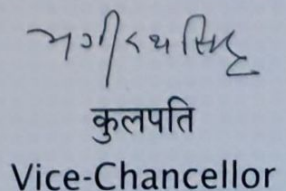 भगीरथ सिंह
कुलपति
Vice-Chancellor